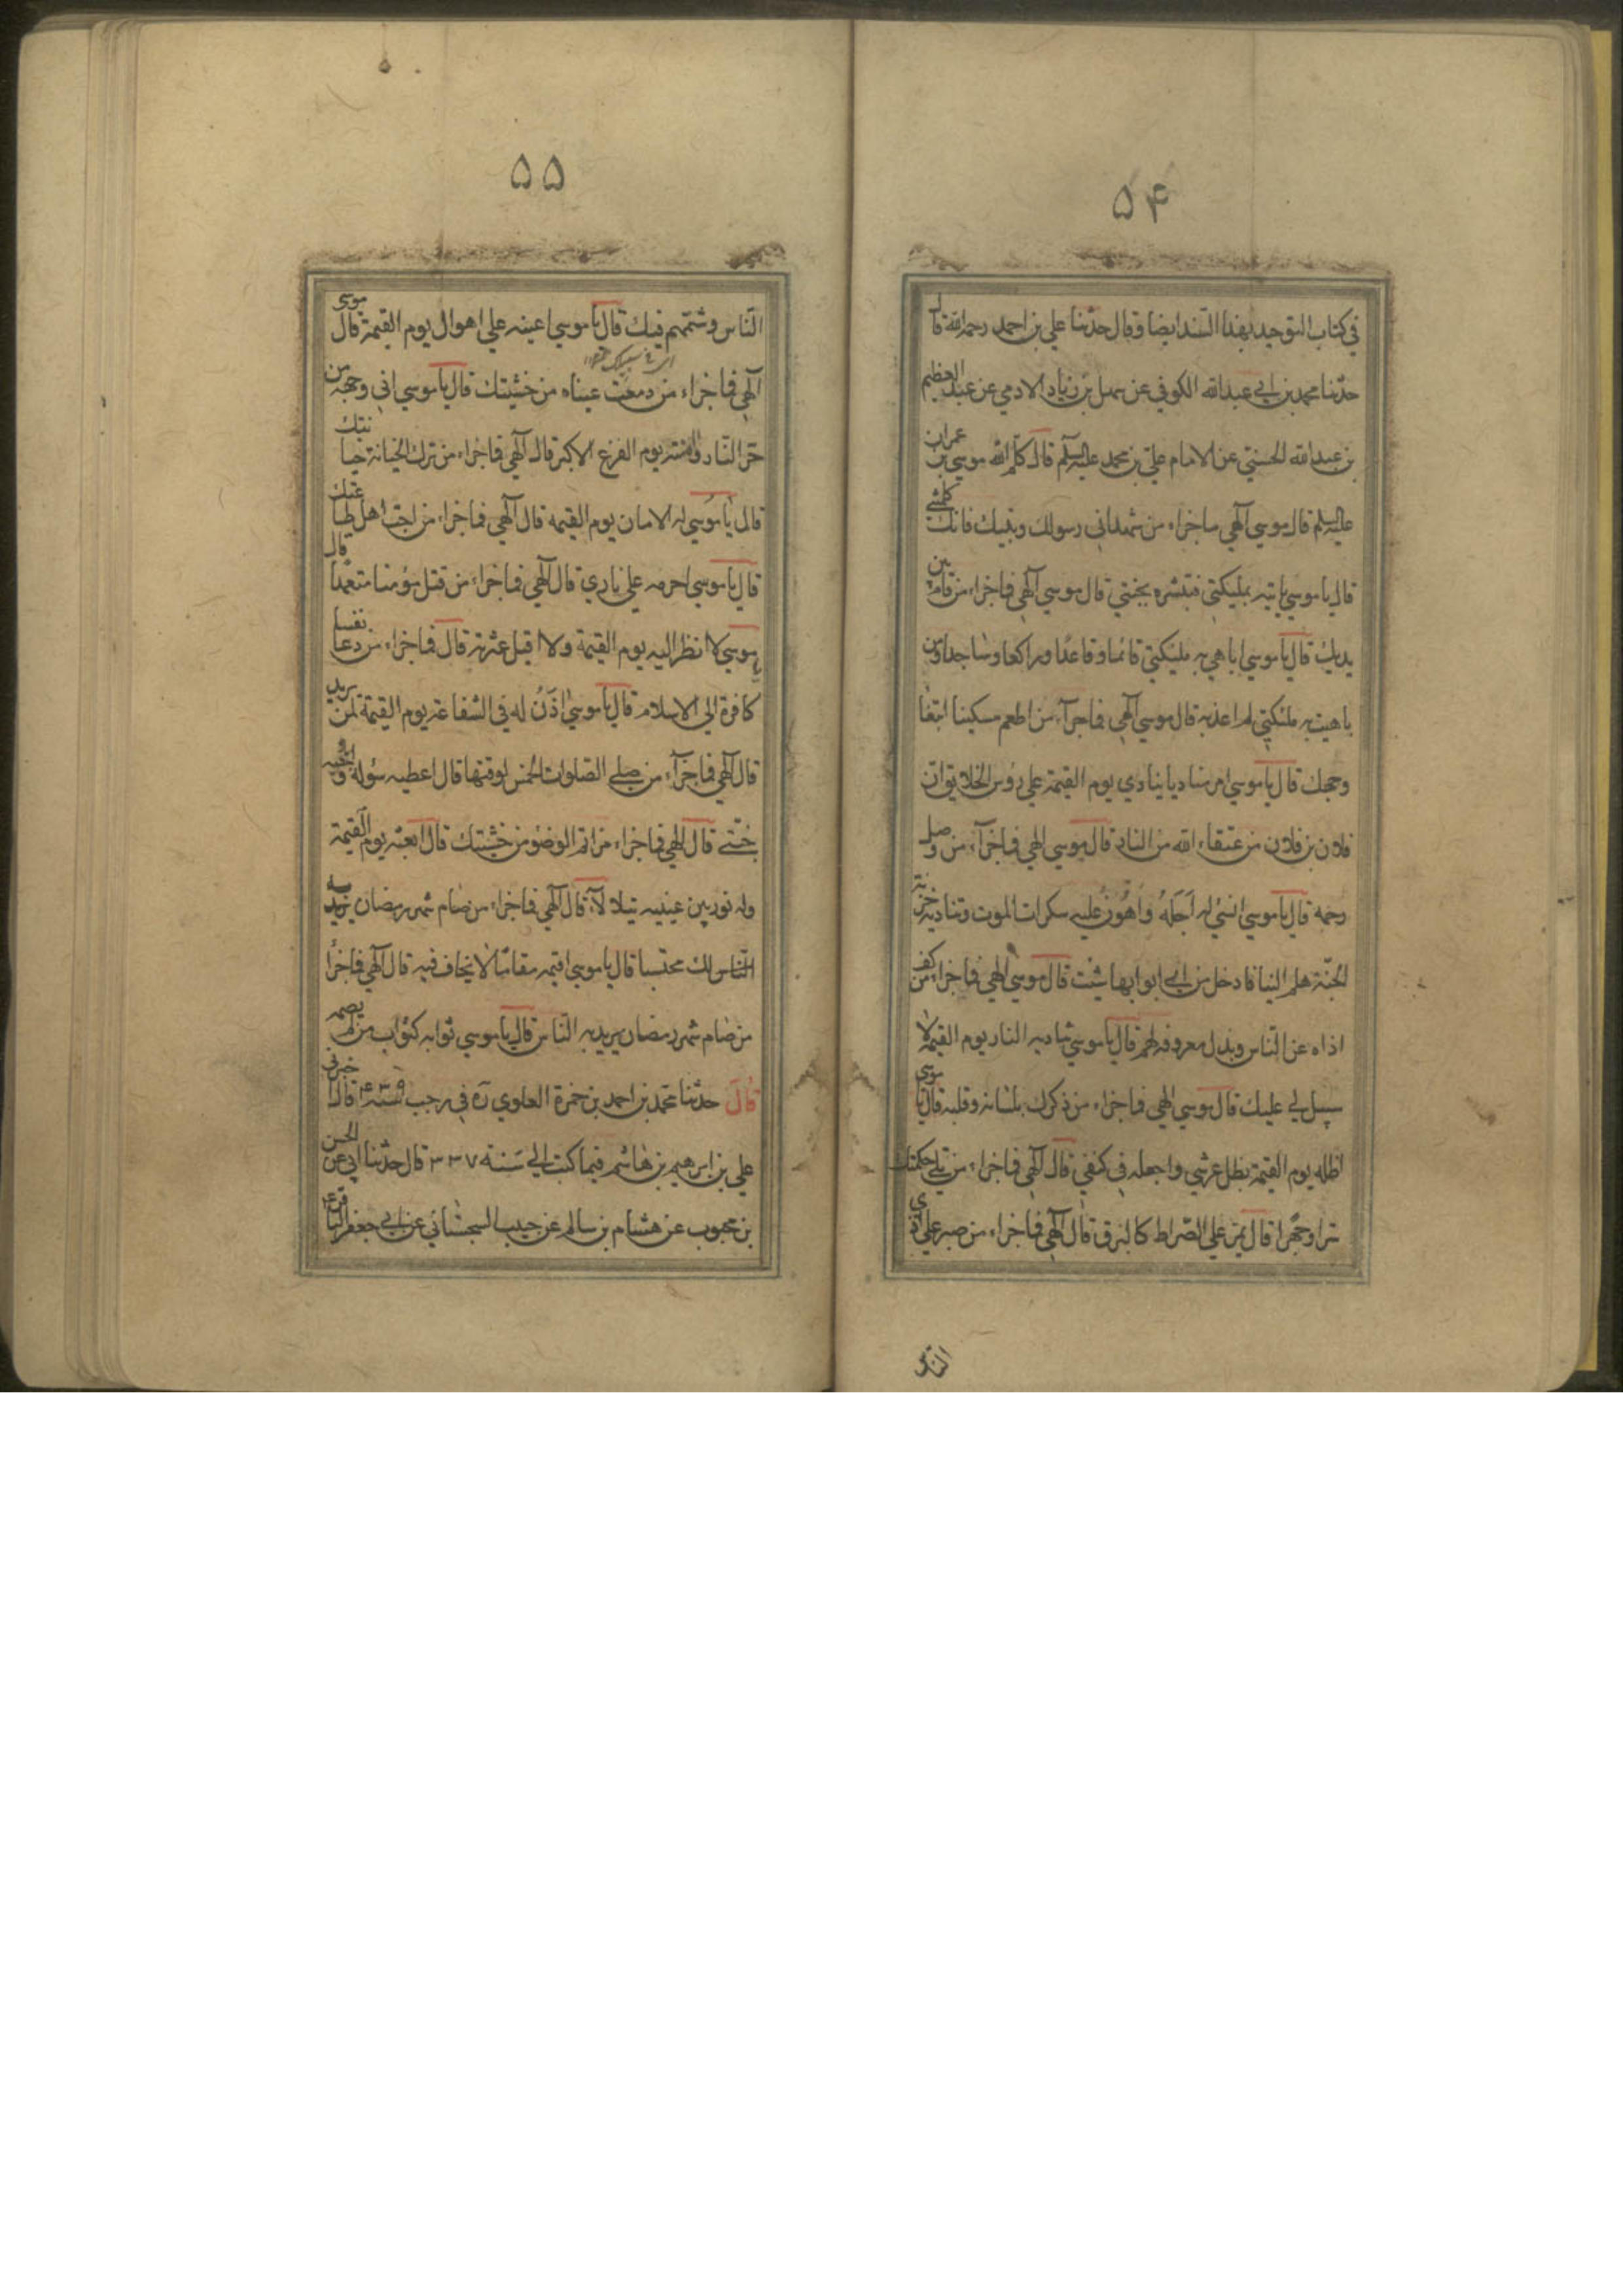 ۵۴
في كتاب التوحيد بهذا السند ايضا وقال حدثنا علي بن احمد رحمه الله قال
حدثنا محمد بن ابي عبدالله الكوفي عن سهل بن زياد الادمي عن عبد العظيم
بن عبدالله الحسني عن الامام علي بن محمد عليه السلم قال كلم الله موسي بن عمران
عليه السلم قال موسي آلهي ماجزاء من شهد اني رسولك ونبيك فانك كلمتني
قال يا موسي ياتيه بمليكتي فتبشره بجنتي قال موسي آلهي فماجزاء من قام بين
يديك قال يا موسي اباهي به مليكتي قائما وقاعدًا وراكعا وساجدا ومن
باهيت به ملئكتي لم اعذبه قال موسي آلهي فماجزآء من اطعم مسكينا ابتغا
وجهك قال يا موسي امر مناديا ينادي يوم القيمة علي رؤس الخلايق ان
فلان بن فلان من عتقاء الله من النار قال موسي الهي فماجزآء من وصل
رحمه قال يا موسي انسئ له اَجَلَهُ وَاُهُون عليه سكرات الموت وتناديه خزنة
الجنّة هلم الينا فادخل من اي ابوابها شئت قال موسي الهي فماجزا من كف
اذاه عن الناس وبذل معروفه لهم قال يا موسي تناديه النار يوم القيمة لا
سبيل لي عليك قال موسي الهي فماجزاء من ذكرك بلسانه وقلبه قال يا موسى
اظله يوم القيمة بظل عرشي واجعله في كنفي قال آلهي فماجزاء من تلي حكمتك
سرا وجهرا قال يمر علي الصّراط كالبرق قال آلهي فماجزاء من صبر علي اذي
الناس
۵۵
النّاس وشتمهم فيك قال يا موسي اعينه علي اهوال يوم القيمة قال موسى
آلهي فماجزاء من دمعت عيناه من خشيتك قال يا موسي اقي وجهه من
حر النّار وامنته يوم الفزع الاكبر قال آلهي فماجزاء من ترك الخيانة حيا منك
قال يا موسي له الامان يوم القيمة قال آلهي فماجزاء من احب اهل طاعتك
قال يا موسي احرمه علي ناري قال آلهي فماجزاء من قتل مؤمنا متعمدا قال
يا موسي لا انظر اليه يوم القيمة ولا اقيل عثرته قال فماجزاء من دعا نفسا
كافرة الي الاسلام قال يا موسي اذَنُ له في الشفاعة يوم القيمة لمن يريد
قال آلهي فماجزآء من صلي الصلوات الخمس لوقتها قال اعطيه سؤله وابيحه
جنتي قال الهي فماجزاء من اتم الوضوء من خشيتك قال ابعثه يوم القيمة
وله نور بين عينيه يتلالأ قال آلهي فماجزاء من صام شهر رمضان يريد به
الناس لك محتسبا قال يا موسي اقيمه مقامًا لا يخاف فيه قال آلهي فماجزأ
من صام شهر رمضان يريد به النّاس قال يا موسي ثوابه كثواب من لم يصمه
قال حدثنا محمد بن احمد بن حمزة العلوي ره في رجب سنة ۳۳۹ قال اخبرني
علي بن ابرهيم بن هاشم فيما كتب الي سَنة ۳۳۷ قال حدثنا ابي عن الحسن
بن محبوب عن هشام بن سالم عن حبيب السجستاني عن ابي جعفر الباقر ع